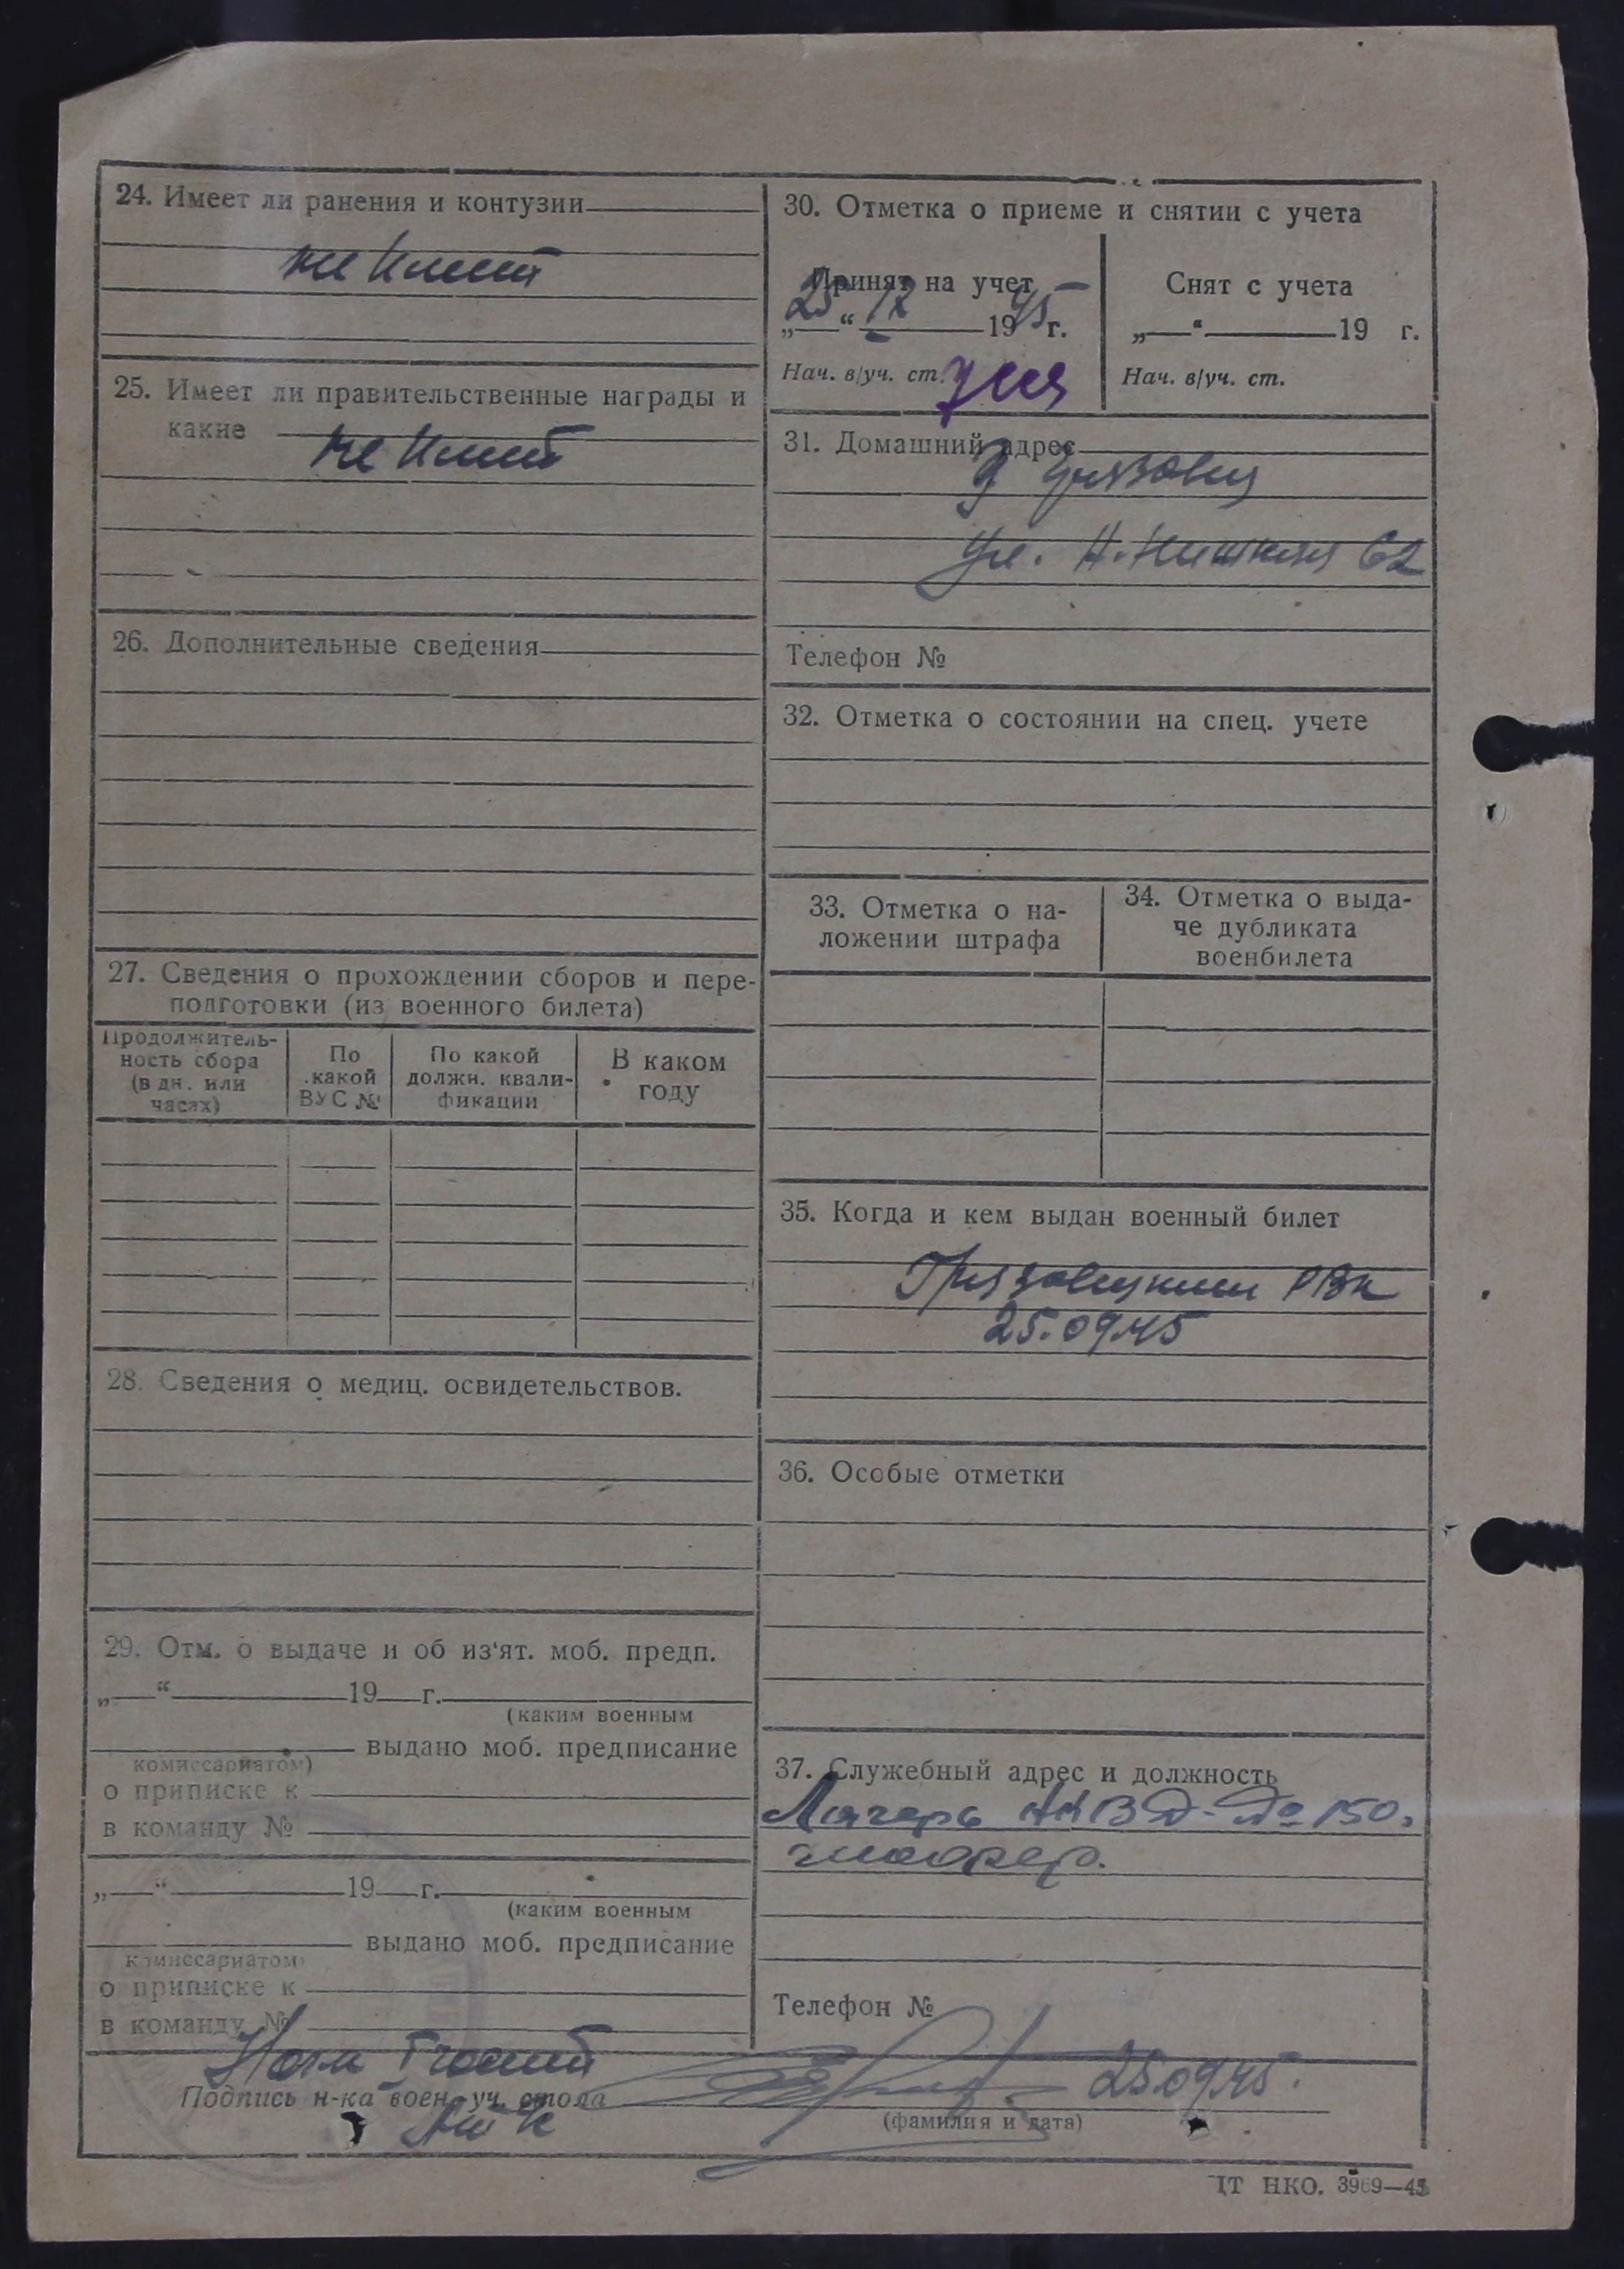 24. Имеет ли ранения и контузии
не имеет
25. Имеет ли правительственные награды и
какие
не имеет
26. Дополнительные сведения
27. Сведения о прохождении сборов и пере-
подготовки (из военного билета)
Продолжитель-
ность сбора
(в дн. или
часах)
По
какой
ВУС №
По какой
должн. квали-
фикации
В каком
году
28. Сведения о медиц. освидетельствов.
29. Отм. о выдаче и об из'ят. моб. предп.
„—“ 19 г.
(каким военным
выдано моб. предписание
комиссариатом)
о приписке к
в команду №
„—“ 19 г.
(каким военным
выдано моб. предписание
комиссариатом
о приписке к
в команду №
30. Отметка о приеме и снятии с учета
Принят на учет
„25“ 12 1945 г.
Нач. в/уч. ст.
Снят с учета
„—“ 19 г.
Нач. в/уч. ст.
31. Домашний адрес
г Грязовец
ул. 62
Телефон №
32. Отметка о состоянии на спец. учете
33. Отметка о на-
ложении штрафа
34. Отметка о выда-
че дубликата
военбилета
35. Когда и кем выдан военный билет
Грязовецким РВК
25.09.45
36. Особые отметки
37. Служебный адрес и должность
Лагерь НКВД № 150,
Телефон №
Подпись н-ка воен.-уч. стола
25.09.45.
(фамилия и дата)
ЦТ НКО. 3969—45